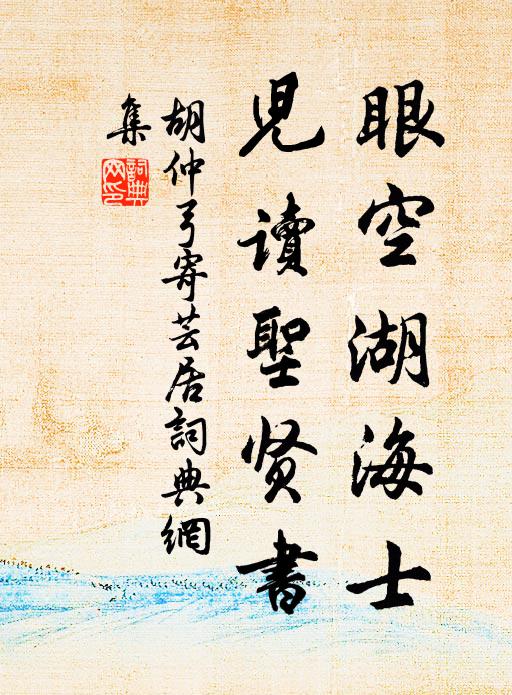 眼空湖海士
児讀聖贤書
胡仲弓寄芸居詞典網
集
詞典網印